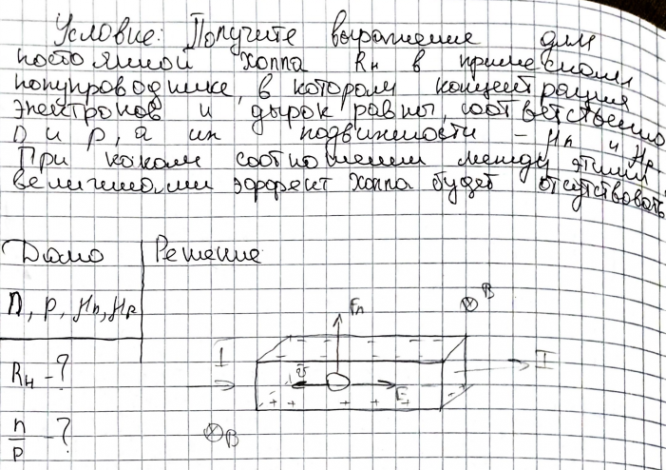 Условие: Получите выражение для
постоянной холла Rн в примесном
полупроводнике, в котором концентрация
электронов и дырок равны, соответственно
n и p, а их подвижности – μn и μp
При каком соотношении между этими
величинами эффект холла будет отсутствовать
Дано Решение
n, p, μn, μp
Rн - ?
n/p - ?
Fл
B
I
I
v
E
B